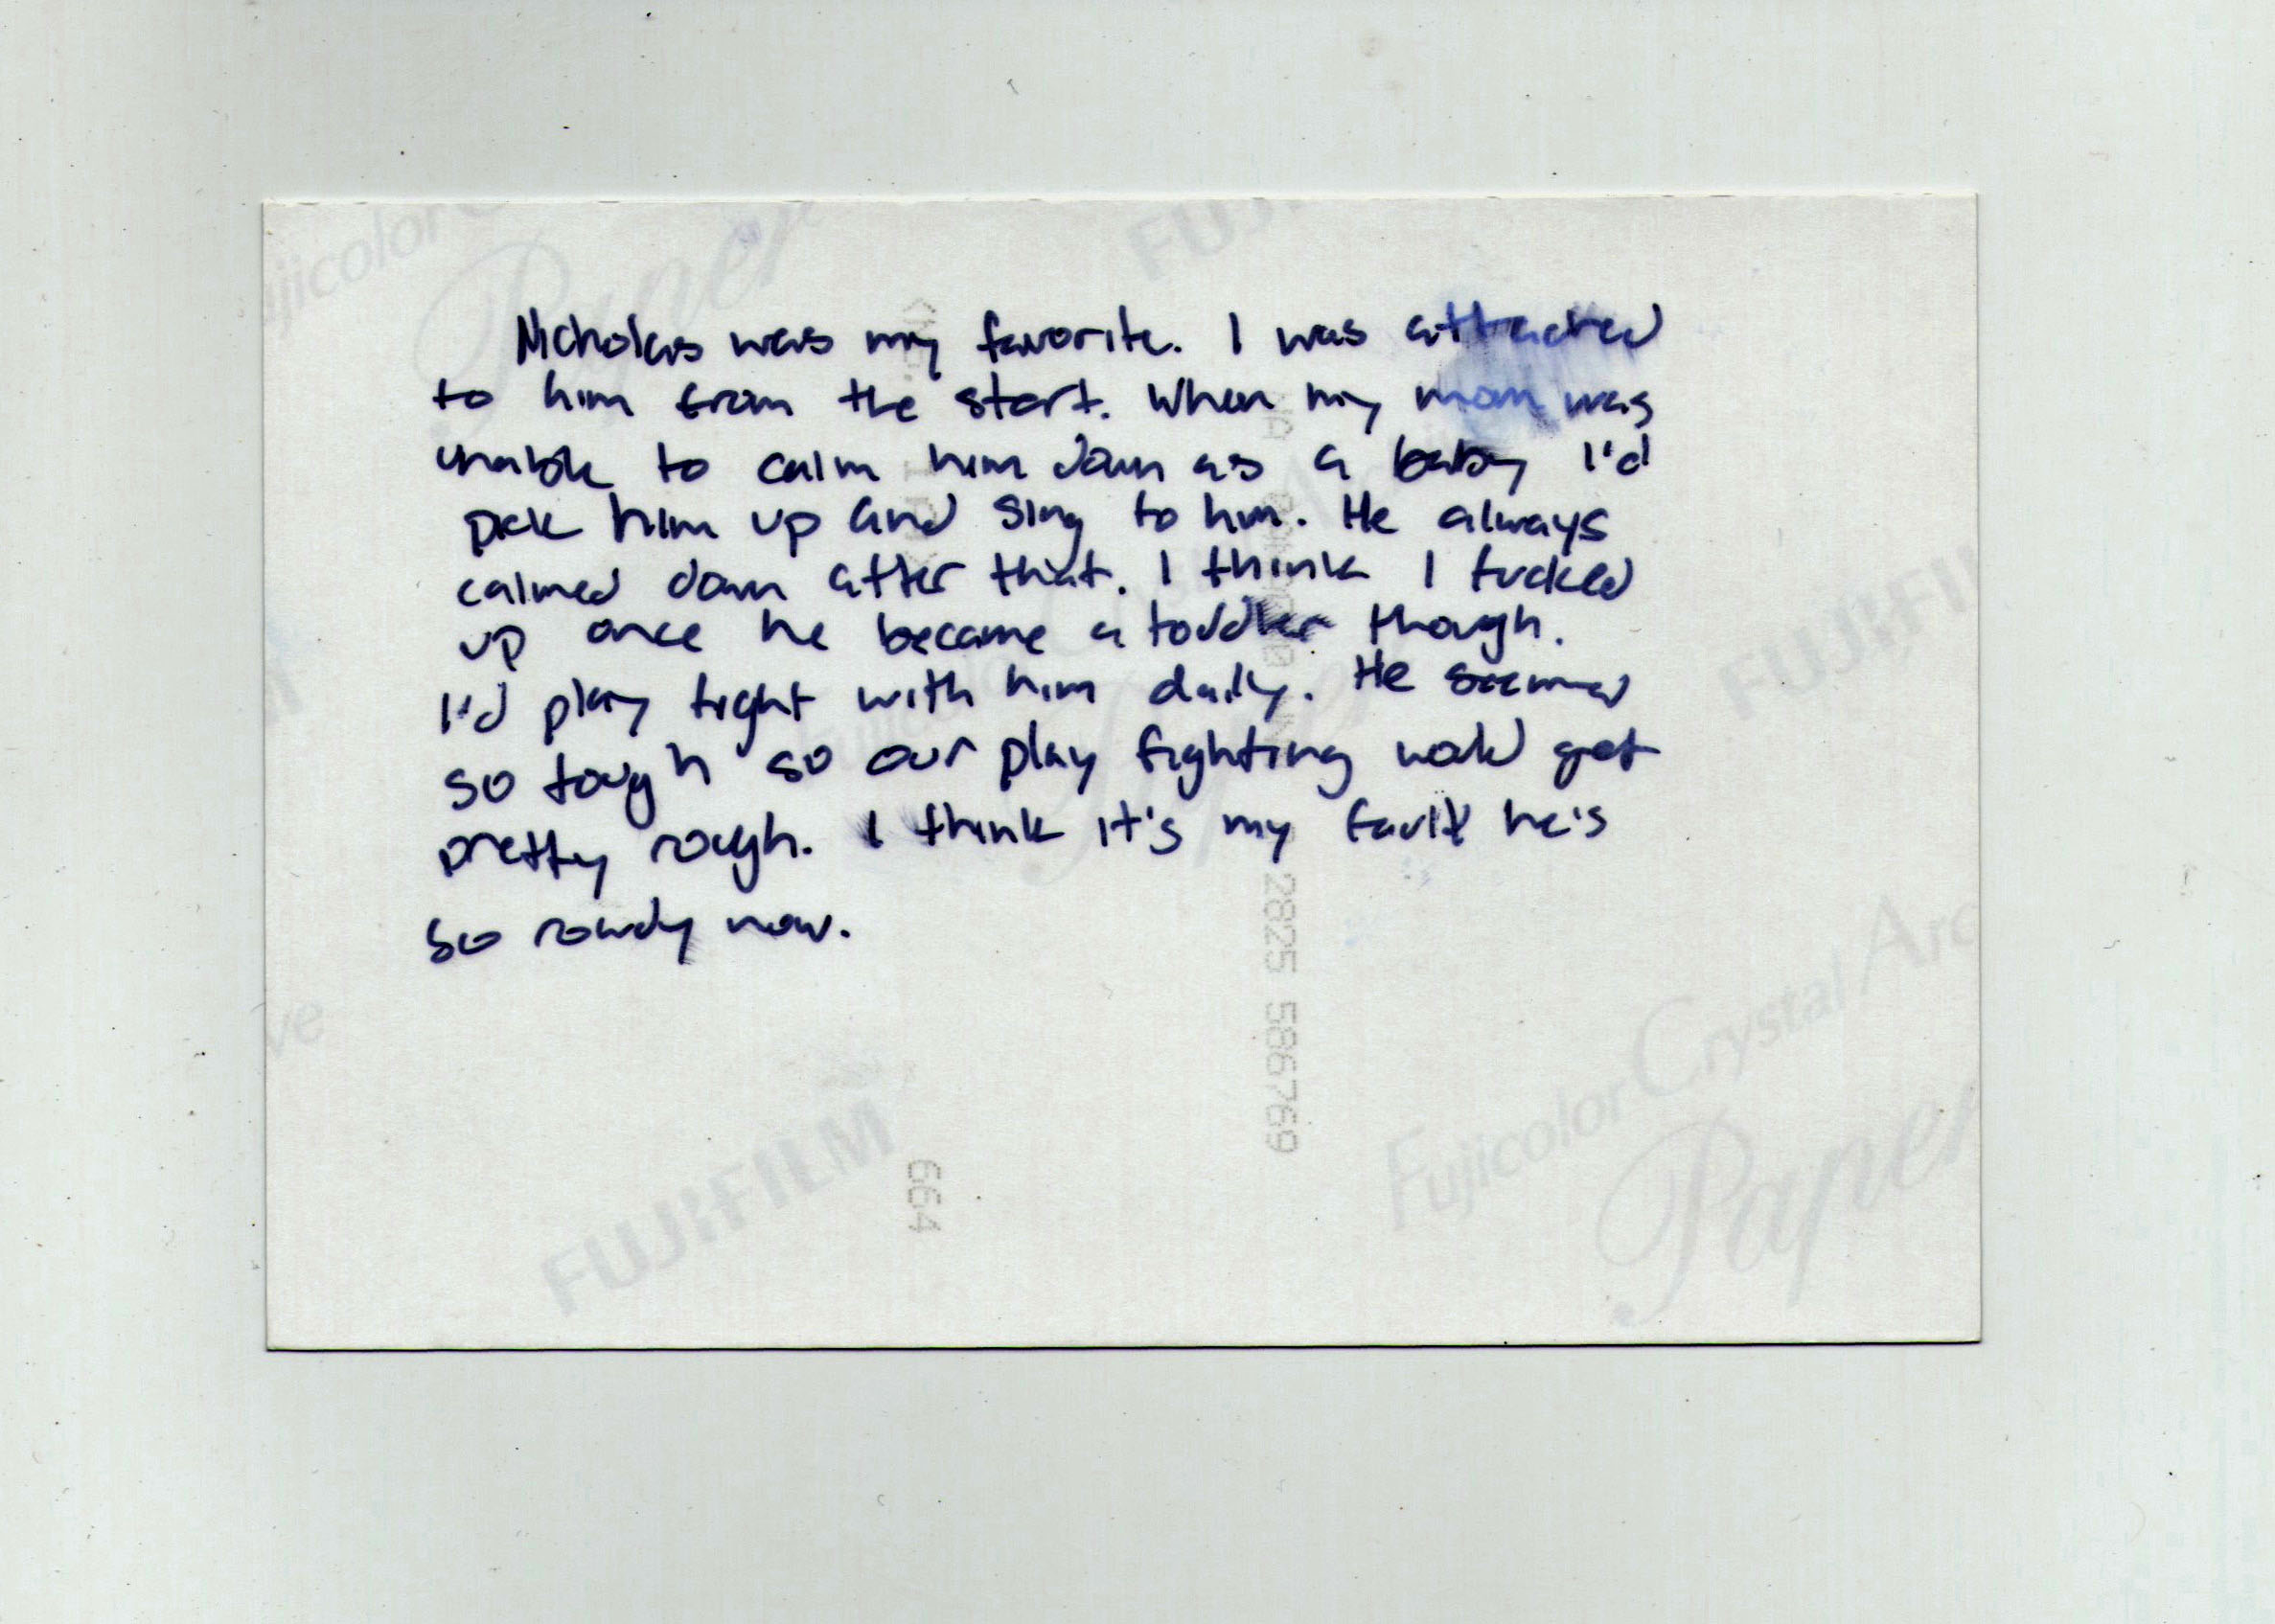 Nicholas was my favorite. I was attached
to him from the start. When my mom was
unable to calm him down as a baby I'd
pick him up and sing to him. He always
calmed down after that. I think I fucked
up once he became a toddler though.
I'd play fight with him daily. He seemed
so tough so our play fighting would get
pretty rough. I think it's my fault he's
so rowdy now.
ujicolor
Paper
FUJI
FUJIFILM
Fujicolor Crystal Arc
Paper
FUJIFILM
ve
2825 586769
664